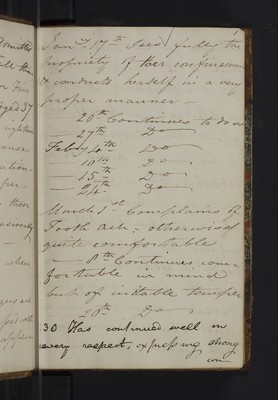 Jany 17th Sees fully the
propriety of her confinement
& conducts herself in a very
proper manner —
— 20th Continues to do so
— 27th Do
Feby 4th Do
— 10th Do
— 15th Do
— 24th Do
March 1st Complains of
Tooth Ach: otherwise
quite comfortable
8th Continues com-
fortable in mind
but of irritable temper
20th Do
30 Has continued well in
every respect, expressing strong
con-